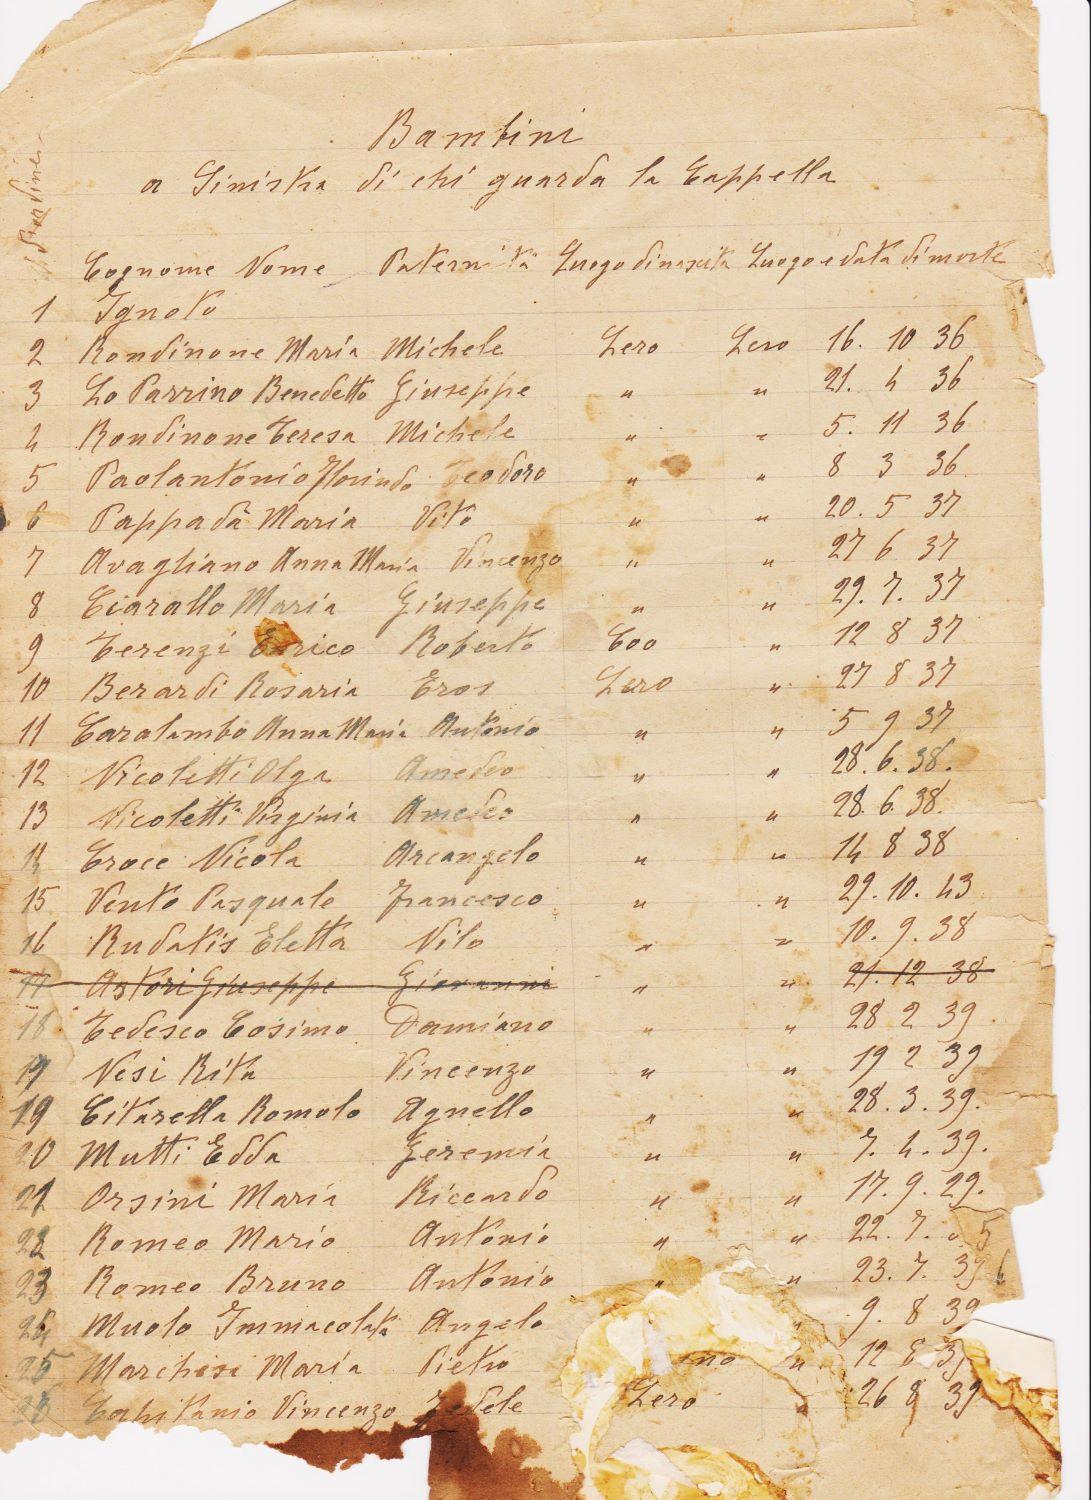 Bambini
a Sinistra di chi guarda la Cappella
Cognome Nome Paternità Luogo di nascita Luogo e data di morte
1 Ignoto
2 Rondinone Maria Michele Lero Lero 16. 10 36
3 Lo Parrino Benedetto Giuseppe " " 21. 4 36
4 Rondinone Teresa Michele " " 5. 11 36
5 Paolantonio Florindo Teodoro " " 8 3 36
6 Pappadà Maria Vito " " 20. 5 37
7 Avagliano Anna Maria Vincenzo " " 27 6 37
8 Ciarallo Maria Giuseppe " " 29. 7. 37
9 Terenzi Enrico Roberto Coo " 12 8 37
10 Berardi Rosaria Eros Lero " 27 8 37
11 Caralambo Anna Maria Antonio " " 5 9 37
12 Nicoletti Olga Amedeo " " 28. 6. 38.
13 Nicoletti Virginia Amedeo " " 28. 6. 38.
14 Croce Nicola Arcangelo " " 14 8 38
15 Vento Pasquale Francesco " " 29. 10. 43
16 Rudatis Eletta Nilo " " 10. 9. 38
17 Astori Giuseppe Giovanni " " 21. 12 38
18 Tedesco Cosimo Damiano " " 28 2 39
19 Nesi Rita Vincenzo " " 19 2 39
19 Citarella Romolo Agnello " " 28. 3. 39.
20 Mutti Edda Geremia " " 7. 4. 39.
21 Orsini Maria Riccardo " " 17. 9. 29.
22 Romeo Mario Antonio " " 22. 7. 5
23 Romeo Bruno Antonio " " 23. 7. 39 6
24 Muolo Immacolata Angelo " 9. 8 39
25 Marchesi Maria Pietro " 12 8 39
Capitanio Vincenzo Fedele Lero " 26 8 39